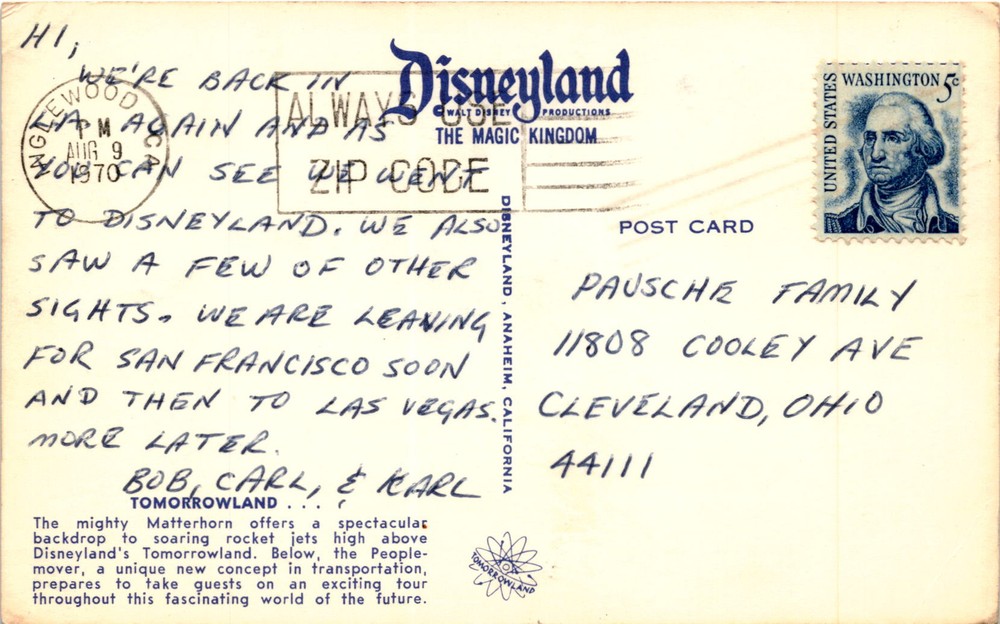 HI,
WE'RE BACK IN
L.A. AGAIN AND AS
YOU CAN SEE WE WENT
TO DISNEYLAND. WE ALSO
SAW A FEW OF OTHER
SIGHTS. WE ARE LEAVING
FOR SAN FRANCISCO SOON
AND THEN TO LAS VEGAS.
MORE LATER.
BOB, CARL, & KARL
TOMORROWLAND . . .
The mighty Matterhorn offers a spectacular
backdrop to soaring rocket jets high above
Disneyland's Tomorrowland. Below, the People-
mover, a unique new concept in transportation,
prepares to take guests on an exciting tour
throughout this fascinating world of the future.
INGLEWOOD, CA
PM
AUG 9
1970
ALWAYS USE
ZIP CODE
Disneyland
© WALT DISNEY PRODUCTIONS
THE MAGIC KINGDOM
DISNEYLAND, ANAHEIM, CALIFORNIA
TOMORROWLAND
POST CARD
UNITED STATES
WASHINGTON 5c
PAUSCHE FAMILY
11808 COOLEY AVE
CLEVELAND, OHIO
44111